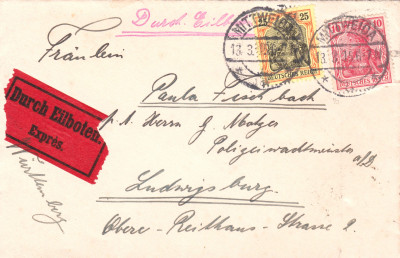 Durch Eilboten
MITTWEIDA
13.3.
25
DEUTSCHES REICH
MITTWEIDA
13.3.
10
DEUTSCHES REICH
Fräulein
Paula Fischbach
p. A. Herrn G. Metzger
Polizeiwachtmeister a/D.
Durch Eilboten.
Exprès.
Ludwigsburg.
Obere-Reithaus-Strasse 2.
Württemberg